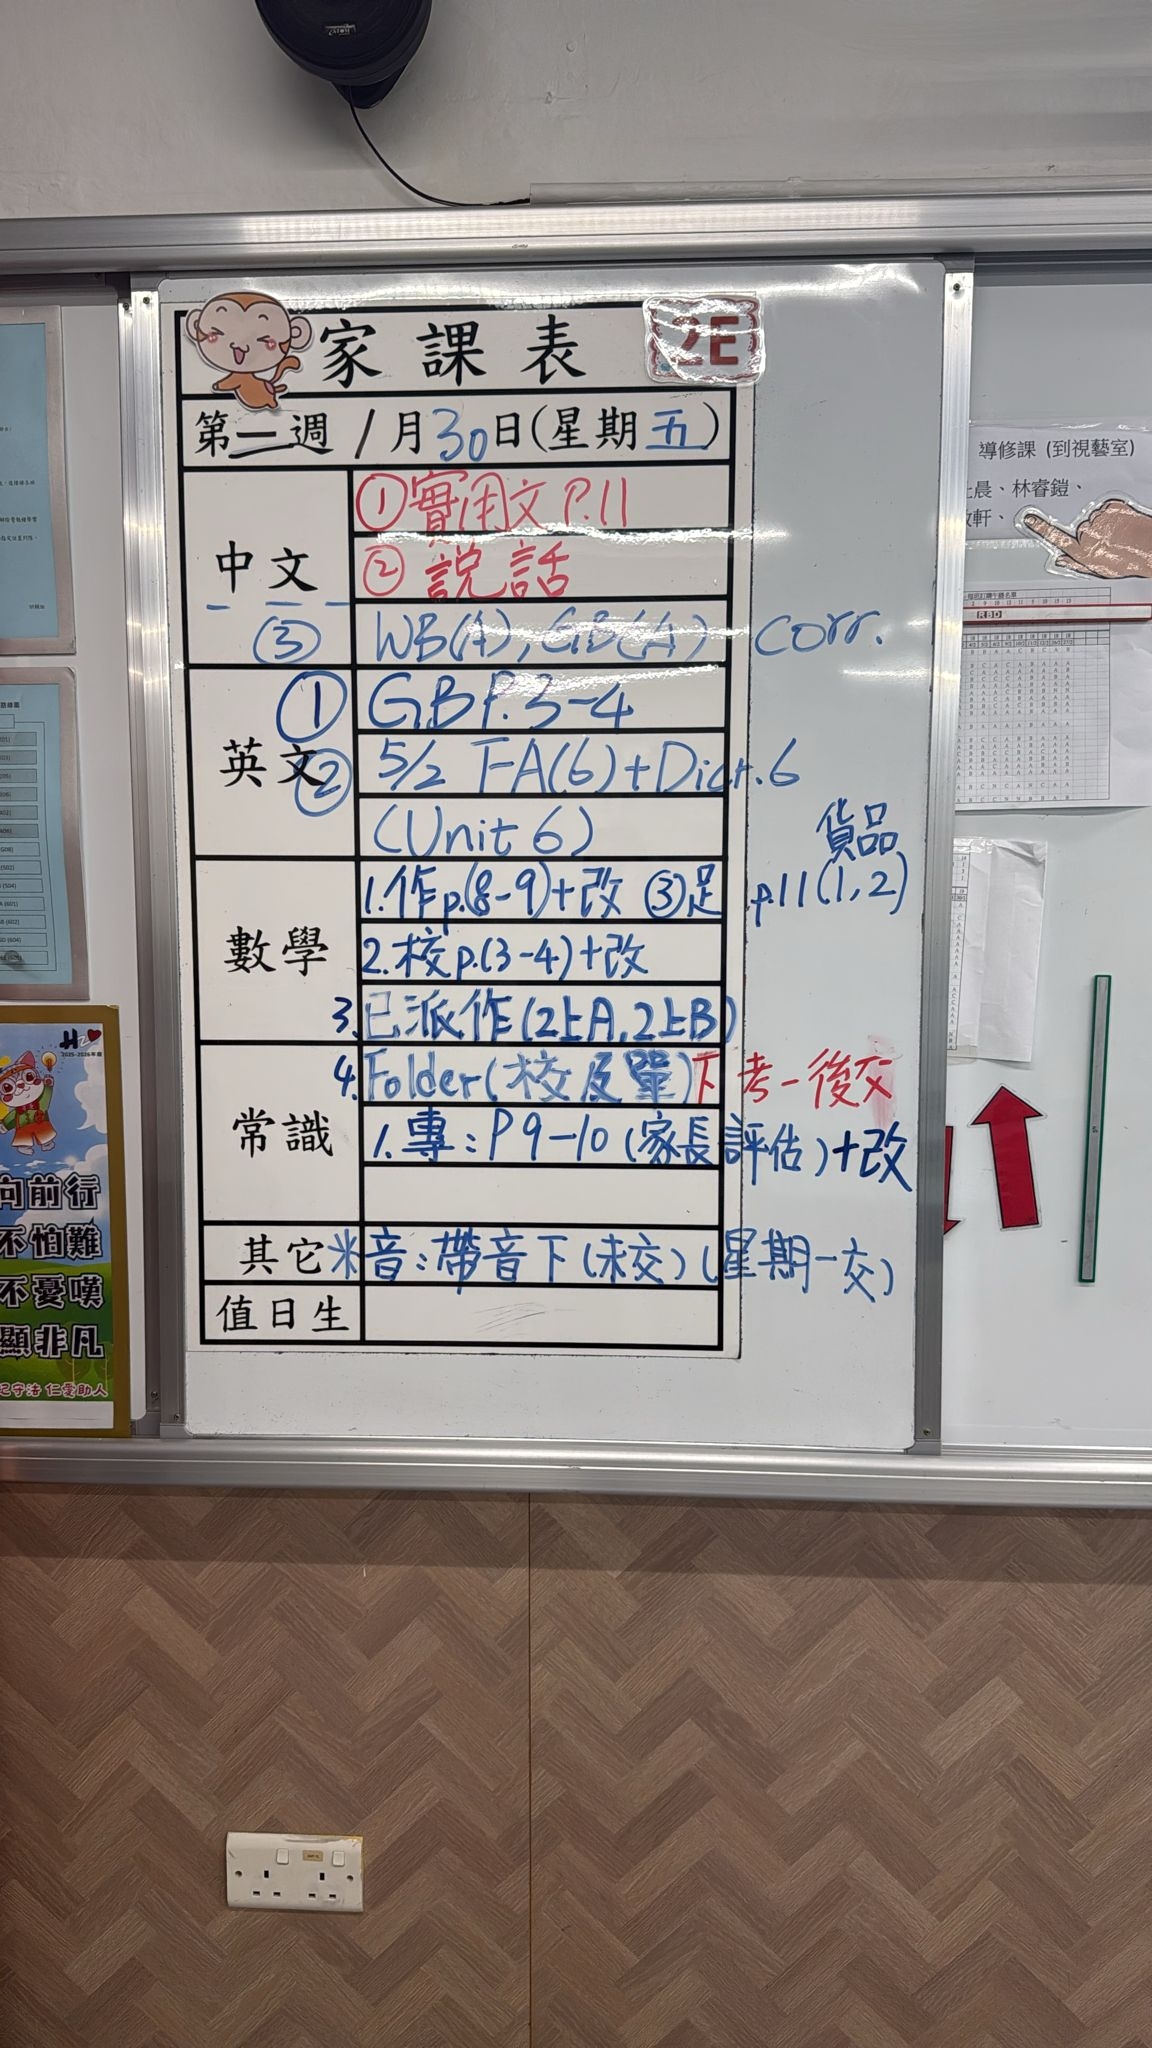 家課表
2E
第一週 1月30日(星期五)
中文
①實用文 P.11
②説話
③ WB(A), GB(A) corr.
英文
① GB P.3-4
② 5/2 FA(6)+Dict.6
(Unit 6)
數學
1.作p.(8-9)+改 ③足 p.11(1,2)
貨品
2.校p.(3-4)+改
3.已派作(2上A,2上B)
常識
4.Folder(校及單)下考一後交
1.專:P9-10(家長評估)+改
其它
米音:帶音下(未交)(星期一交)
值日生
導修課 (到視藝室)
晨、林睿鎧、
軒、
RBD
2025-2026年度
向前行
不怕難
不憂嘆
顯非凡
守法 仁愛助人